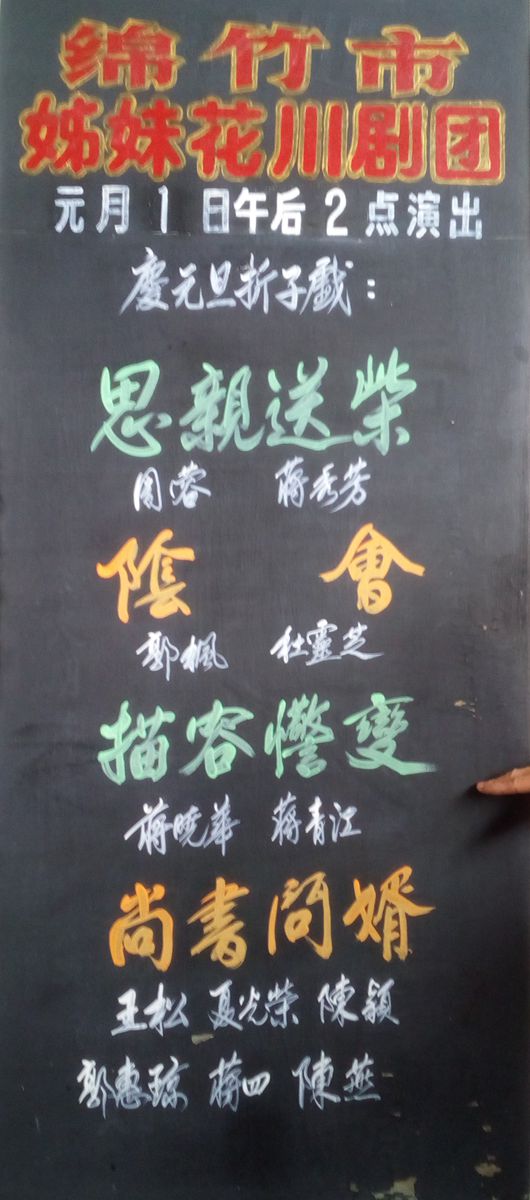 绵竹市
姊妹花川剧团
元月1日午后2点演出
慶元旦折子戲：
思親送柴
周蓉 蔣秀芳
陰 會
郭楓 杜靈芝
描容懮變
蔣曉華 蔣青江
尚書問婿
王松 夏光榮 陳穎
郭惠琼 蔣四 陳燕